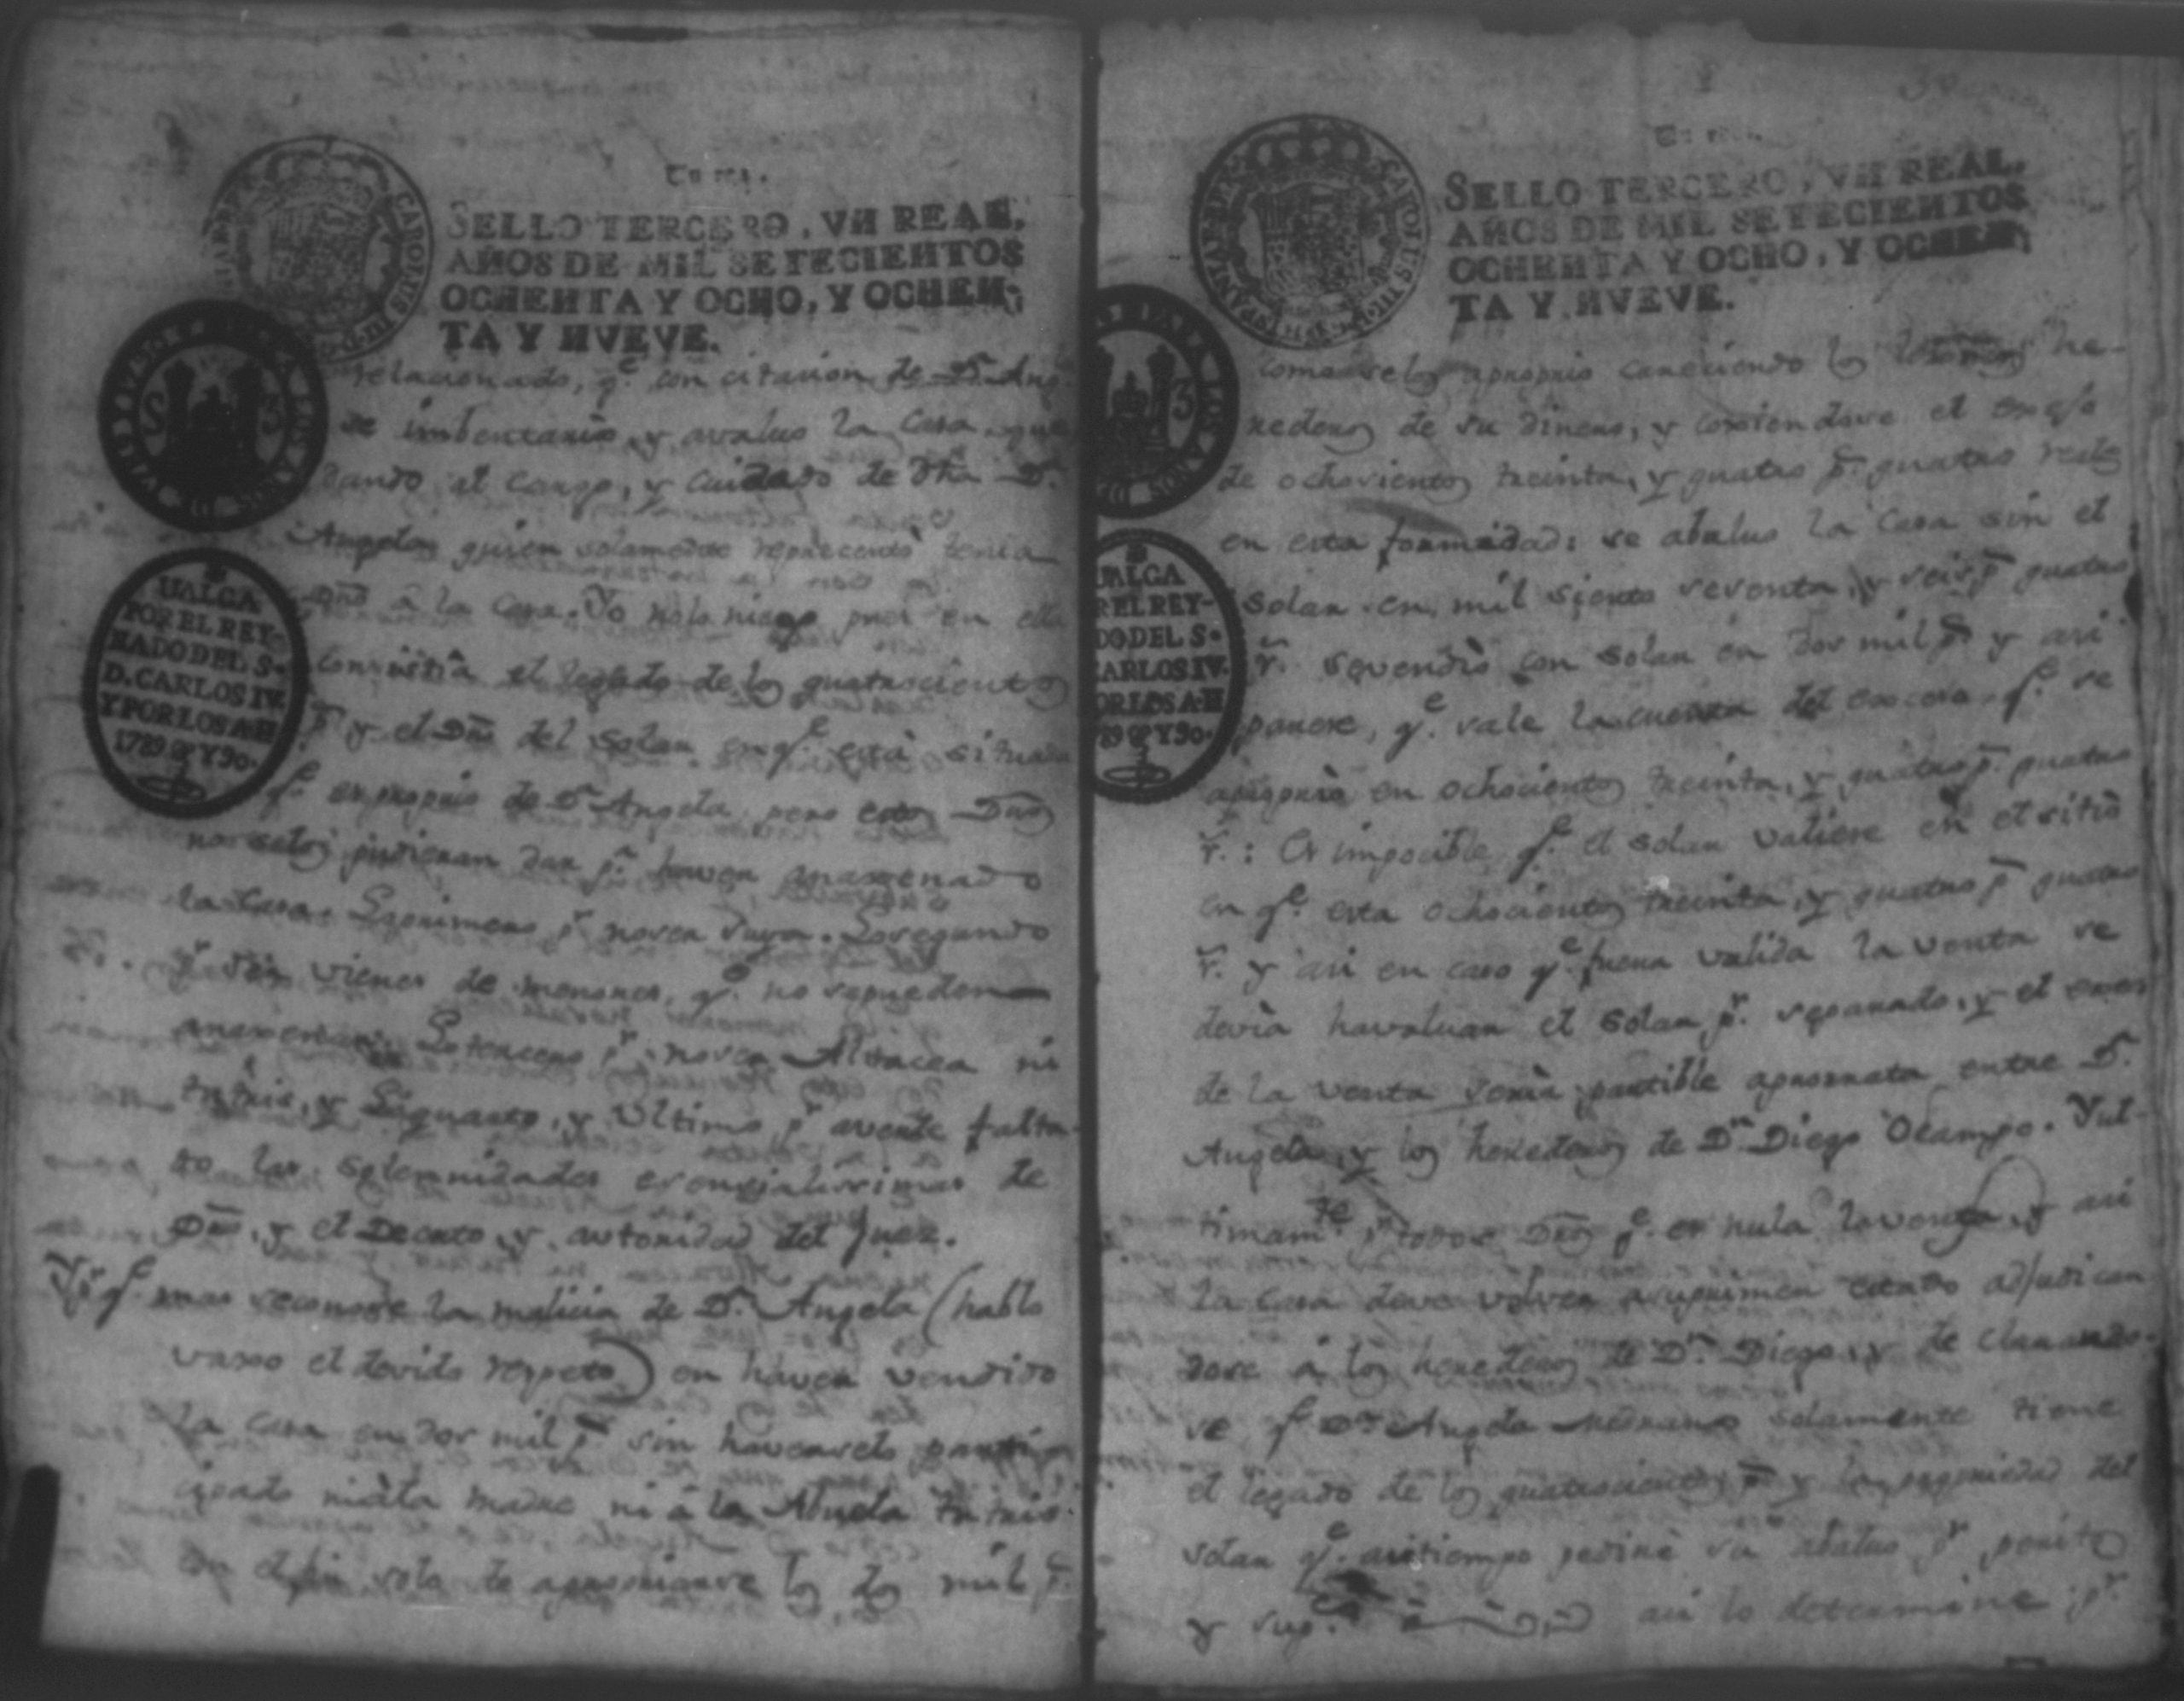 SELLO TERCERO, VN REAL,
AÑOS DE MIL SETECIENTOS
OCHENTA Y OCHO, Y OCHEN-
TA Y NVEVE.
VALGA
POR EL REY-
NADO DEL S.
D. CARLOS IV.
Y POR LOS A. D
1789 Y 90.
relacionado, qe. con citacion de Da. Ang.
se imbentario, y avaluo la Casa, que
dando al cargo, y cuidado de dha Da.
Angela, quien solamente reprecentò tenia
dro â la Casa. Yo no lo niego pues en ella
consistia el legado de los quatrocientos
ps y el Dro del Solar en qe. està situada
qe. es propio de Da. Angela, pero estos Dros
no se los pudieran dar pa. haver enagenado
la Casa. Lo primero pr. no ser suya. Lo segundo
pr. ser vienes de menores, qe. no se pueden
enagenar. Lo tercero pr. no ser Albacea ni
tutriz, y Lo quarto, y Ultimo pr. averle falta-
do las solemnidades esencialissimas de
Dro, y el Decreto, y autoridad del Juez.
Y pr. qe. mas se conosca la malicia de Da. Angela (hablo
vajo el devido respeto) en haver vendido
la Casa en dos mil ps. sin haverselo parti-
cipado ni â la madre ni â la Abuela tutriz.
con el fin solo de apropiarse los dos mil ps.
SELLO TERCERO, VN REAL,
AÑOS DE MIL SETECIENTOS
OCHENTA Y OCHO, Y OCHEN-
TA Y NVEVE.
VALGA
REL REY-
DO DEL S.
CARLOS IV.
OR LOS A. D
789 Y 90.
como se los apropio careciendo los he-
rederos de su dinero, y
de ochocientos treinta, y quatro ps. quatro reales
en esta formidad: se abaluo la Casa sin el
Solar en mil siento sesenta, y seis ps. quatro
rs. se vendiò con solar en dos mil ps. y asi
parece, qe. vale la cuenta del qe. se
apropiò en ochocientos treinta, y quatro ps. quatro
rs.: Es imposible qe. el solar valiese en el sitio
en qe. esta ochocientos treinta, y quatro ps. quatro
rs. y asi en caso qe. fuera valida la venta se
devia havaluar el Solar pr. separado, y el
de la venta seria partible aprorrata entre Da.
Angela, y los herederos de Dn. Diego Ocampo. Vul-
timamte. pr. todos Dros qe. es nula la venta, y asi
la Casa deve volver a su primer estado adjudican
dose â los herederos de Dn. Diego, y declarando-
se qe. Da. Angela Medrano solamente tiene
el legado de los quatrocientos ps. y la propiedad del
Solar qe. asutiempo pedirè su abaluo pr. peritos
y supca. asi lo determine pr.